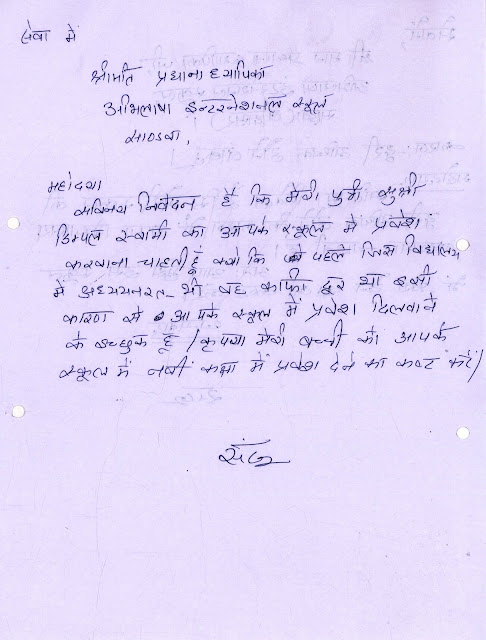 सेवा में
श्रीमति प्रधानाध्यापिका
अभिलाषा इन्टरनेशनल स्कूल
साण्डवा,
महोदया
सविनय निवेदन है कि मेरी पुत्री सुश्री
डिम्पल स्वामी का आपके स्कूल मे प्रवेश
करवाना चाहती हूँ क्यो कि पहले जिस विद्यालय
में अध्ययनरत थी वह काफी दूर था इसी
कारण से आपके स्कूल में प्रवेश दिलवाने
के इच्छुक हूँ / कृपया मेरी बच्ची को आपके
स्कूल में नवीं कक्षा मे प्रवेश देने का कष्ट करें /